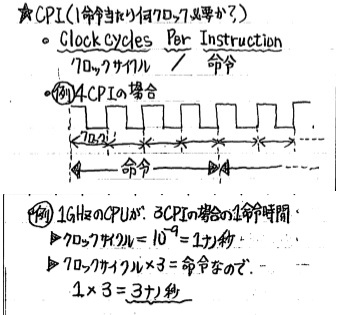 ☆CPI(1命令当たり何クロック必要か?)
○ Clock Cycles Per Instruction
クロックサイクル / 命令
○例 4CPIの場合
クロック
命令
例 1GHzのCPUが、3CPIの場合の1命令時間
▶クロックサイクル=10⁻⁹=1ナノ秒
▶クロックサイクル×3=命令なので、
1×3=3ナノ秒